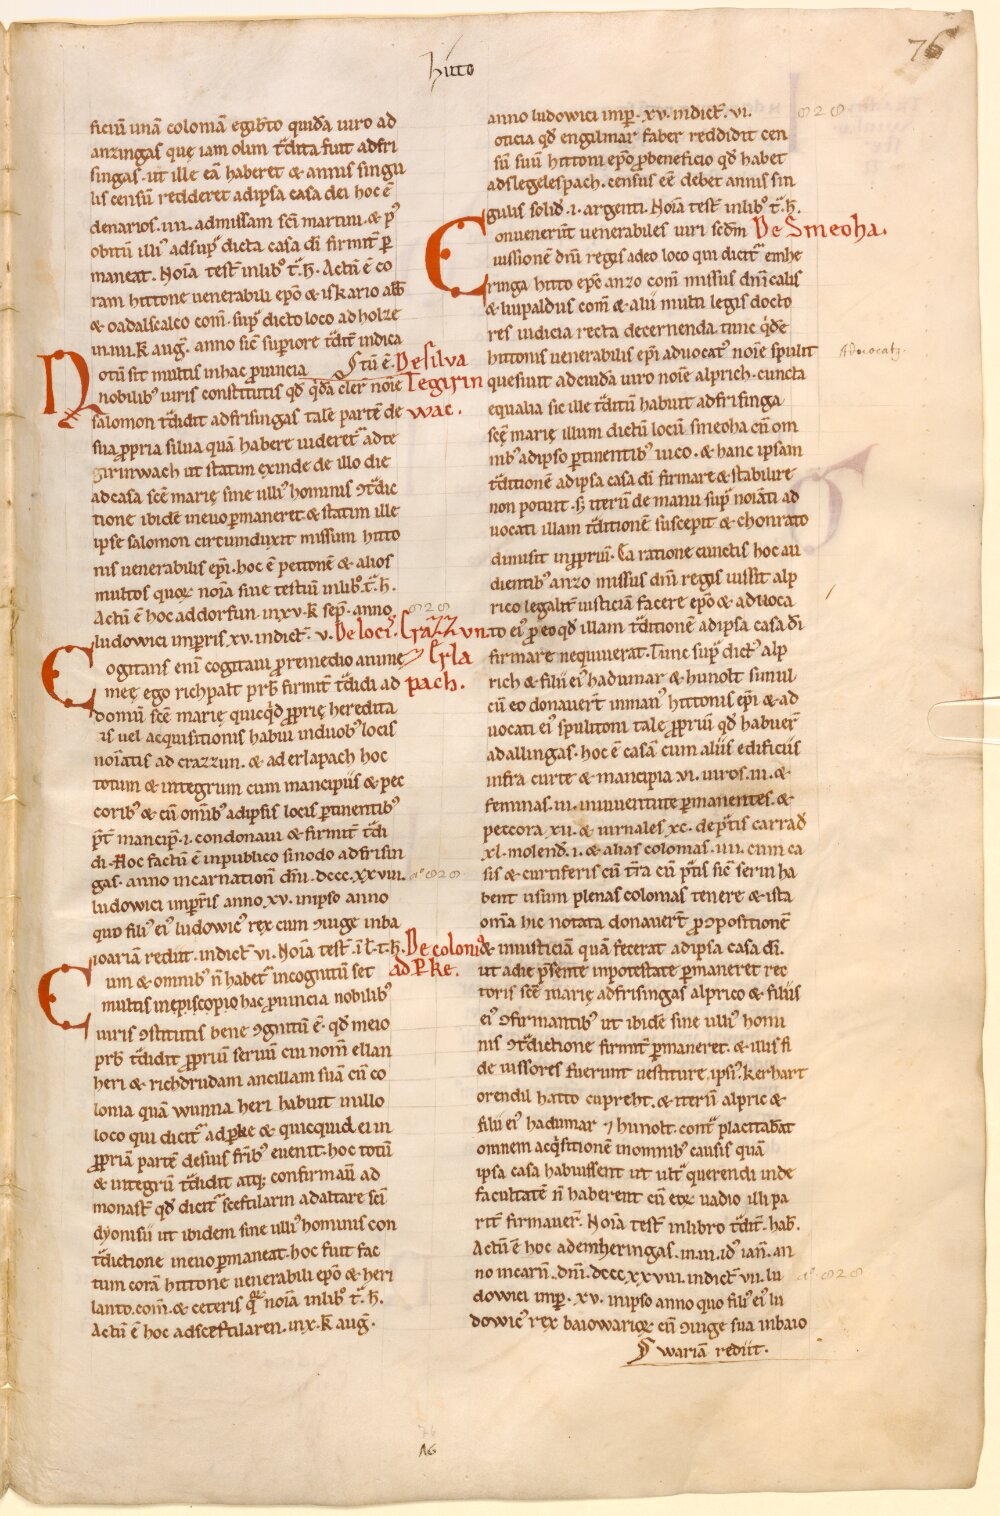 hitto
76
ficiū unā coloniā egilb̄to quidā uiro ad
anzingas quę iam olim t̄dita fuit adfri
singas. ut ille eā haberet & annis singu
lis censū redderet adipsa casa dei hoc ē
denarios .iiii. admissam sc̄i martini. & p⁹
obitū illi⁹ adsup̄ dicta casa dī firmit̄ p̄
maneat. Noīa test̄ inlib⁹ t̄.h̄. Actū ē co
ram hittone uenerabili ep̄o & iskario abb̄
& oadalscalco com̄. sup̄ dicto loco ad holze
in.iiii.k̄ auḡ. anno sic̄ superiore t̄dit̄ indica
Stū ē. De silva
Notū sit multis inhac ꝓuincia
Tegirin
nobilib⁹ uiris constitutis qd̄ qdā cler̄ noīe
wac.
salomon t̄didit adfrisingas tale partē de
sua ꝓpria silua quā habere uideret̄ adte
girinwach ut statim exinde de illo die
ad casa sc̄e marię sine ulli⁹ hominis ɔt̄dic
tione ibidē ineuo ꝑmaneret. & statim ille
ipse salomon circumduxit missum hitto
nis uenerabilis ep̄i. hoc ē pettonē & alios
multos quoꝝ noīa sine testiū inlib⁹.t̄.h̄.
Actū ē hoc addorfun. inxv.k̄ sep̄. anno
828
ludowici imp̄ris xv. indict̄. v. De locis Crazzun
Cogitans enī cogitavi ꝓremedio anime
⁊ Erla
meę ego richpalt prb̄ firmit̄ t̄didi ad
pach.
domū sc̄e marię quicqd̄ ꝓprię heredita
tis uel acquisitionis habui induob⁹ locis
noīatis ad crazzun. & ad erlapach hoc
totum & integrum cum mancipiis & pec
corib⁹ & cū om̄ib⁹ adipsis locis ꝑtinentib⁹
p̄t̄ mancip̄.i. condonaui & firmit̄ t̄di
di. Hoc factū ē inpublico sinodo adfrisin
gas. anno incarnationis dn̄i. dccc.xxviii.
aᵒ 828
ludowici imp̄ris anno xv. inipso anno
quo fili⁹ ei⁹ ludowic⁹ rex cum ɔiuge inba
ioariā rediit. indict̄ vi. Noīa test̄. i l̄.t.h̄. De colonia
Cum & omnib⁹ n̄ habet̄ incognitū set
ad Pke.
multis inepiscopio hac ꝓuincia nobilib⁹
uiris ɔstitutis bene ɔgnitū ē. qd̄ meio
prb̄ t̄didit ꝓpriū seruū cui nom̄ ellan
heri & richdrudam ancillam suā cū co
lonia quā wunna heri habuit inillo
loco qui dicit̄ ad p̄ke & quicquid ei in
ꝓpriā partē desuis frīb⁹ euenit. hoc totū
& integrū t̄didit atq; confirmau̅ ad
monast̄ qd̄ dicit̄ sceftilarin adaltare sc̄i
dyonisii ut ibidem sine ulli⁹ hominis con
t̄dictione ineuo ꝑmaneat. hoc fuit fac
tum corā hittone uenerabili ep̄o & heri
lanto. com̄. & ceteris q̄ noīa inlib⁹ t̄.h̄.
Actū ē hoc adsceftilaren. inx.k̄ auḡ.
anno ludowici imp̄. xv. indict̄. vi.
828
oticia qd̄ engilmar faber reddidit cen
sū suū hittoni ep̄o ꝓbeneficio qd̄ habet
adslegelespach. census eē debet annis sin
gulis solid̄.i. argenti. Noīa test̄ inlib⁹ t̄.h̄.
Conuenerūt uenerabiles uiri sc̄dm̄ De Smeoha.
iussionē dn̄i regis adeo loco qui dicit̄ emhe
ringa hitto ep̄c anzo com̄ missus dn̄icalis
& liupaldus com̄ & alii multi legis docto
res iudicia recta decernenda. tunc qd̄e
hittonis uenerabilis ep̄i aduocat⁹ noīe spulit
Advocatꝫ.
quesiuit adcuidā uiro noīe alprich. cuncta
equalia sic ille t̄ditū habuit adfrisinga
sc̄e marię illum dictū locū smeoha cū om
nib⁹ adipso ꝑtinentib⁹ iuco. & hanc ipsam
t̄ditionē adipsa casa dī firmare & stabilire
non potuit. s; iterū de manu sup̄ noīati ad
uocati illam t̄ditionē suscepit & chonrato
dimisit inꝓpriū. Ea ratione cunctis hoc au
dientib⁹ anzo missus dn̄i regis iussit alp
rico legalit̄ iusticiā facere ep̄o & aduoca
to ei⁹ ꝓ eo qd̄ illam t̄ditionē adipsa casa dī
firmare nequiuerat. Tunc sup̄ dict⁹ alp
rich & filii ei⁹ hadumar & hunolt simul
cū eo donauer̄t inman⁹ hittonis ep̄i & ad
uocati ei⁹ spulitoni tale ꝓpriū qd̄ habuer̄
adallingas. hoc ē casā cum aliis edificiis
infra curte & mancipia .vi. uiros .iii. &
feminas .iii. iniuuentute ꝑmanentes. &
peccora .xii. & uirnales xc. dep̄tis carrad̄
xl. molend̄.i. & alias colonias .iiii. cum ca
sis & curtiferis cū t̄ra cū p̄tis sic̄ serui ha
bent usum plenas colonias tenere & ista
om̄a hic notata donauer̄t ꝓɔpositionē
& iniusticiā quā fecerat adipsa casa dī.
ut adie p̄sente inpotestate ꝑmaneret rec
toris sc̄e marię adfrisingas alprico & filiis
ei⁹ ɔfirmantib⁹ ut ibidē sine ulli⁹ homi
nis ɔt̄dictione firmit̄ ꝑmaneret. & illis fi
de iussores fuerunt uestiture ipsi⁹. kerhart
orendil hatto cupreht. & iterū alpric &
filii ei⁹ hadumar ⁊ hunolt. cont̄ placitab̄at
omnem acq̄sitionē inomnib⁹ causis quā
ipsa casa habuissent ut ult̄ querendi inde
facultatē n̄ haberent cū eoꝝ uadio illi pa
rit̄ firmauer̄. Noīa test̄ inlibro t̄dit̄. hab̄.
Actū ē hoc ademheringas. in.iii.id⁹ ian̄. an
no incarn̄. dn̄i. dccc.xxviii. indict̄ vii. lu
aᵒ 828
dowici imp̄. xv. inipso anno quo fili⁹ ei⁹ lu
dowic⁹ rex baiowarioꝝ cū ɔiuge sua inbaio
wariā rediit.
16